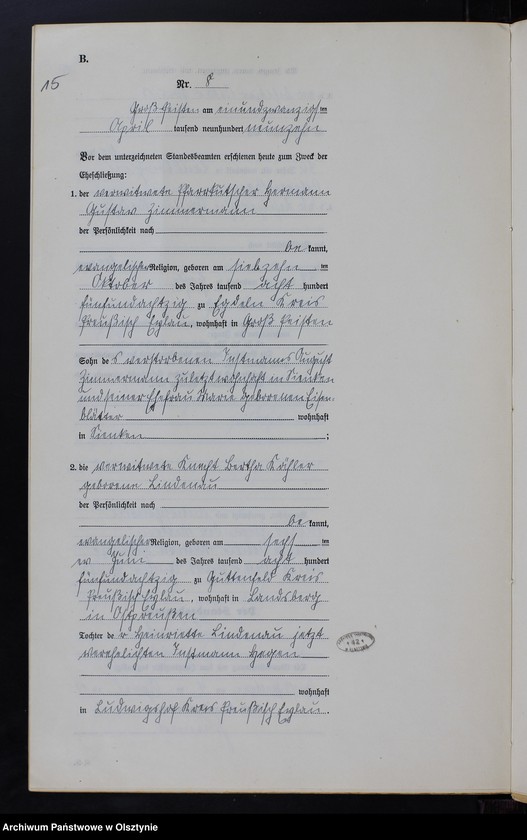 B.
15
Nr. 8
Groß Peisten am einundzwanzigsten
April tausend neunhundert neunzehn
Vor dem unterzeichneten Standesbeamten erschienen heute zum Zweck der
Eheschließung:
1. der verwitwete Pfarrkutscher Hermann
Gustav Zimmermann
der Persönlichkeit nach
be kannt,
evangelischer Religion, geboren am siebzehn ten
Oktober des Jahres tausend acht hundert
fünfundachtzig zu Egdeln Kreis
Preußisch Eylau, wohnhaft in Groß Peisten
Sohn de s verstorbenen Instmannes August
Zimmermann zuletzt wohnhaft in Sienken
und seiner Ehefrau Marie geborenen Eisen-
blätter wohnhaft
in Sienken ;
2. die verwitwete Knecht Bertha Kähler
geborene Lindenau
der Persönlichkeit nach
be kannt,
evangelischer Religion, geboren am sech s ten
Juni des Jahres tausend acht hundert
fünfundachtzig zu Guttenfeld Kreis
Preußisch Eylau, wohnhaft in Landsberg
in Ostpreußen
Tochter de r Heinriette Lindenau jetzt
verehelichten Instmann Hagen
wohnhaft
in Ludwigshof Kreis Preußisch Eylau.
Archiwum Państwowe w Olsztynie